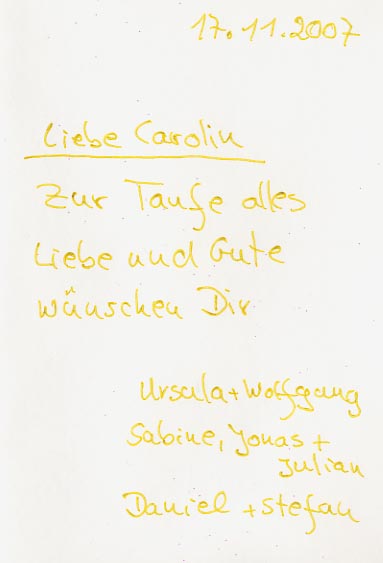 17.11.2007
Liebe Carolin
Zur Taufe alles
Liebe und Gute
wünschen Dir
Ursula + Wolfgang
Sabine, Jonas +
Julian
Daniel + Stefan